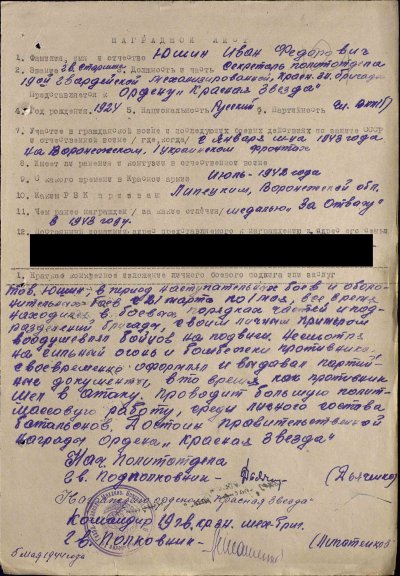 НАГРАДНОЙ ЛИСТ
1. Фамилия, имя и отчество Юшин Иван Федорович
2. Звание гв. старшина 3. Должность и часть Секретарь политотдела
19ой Гвардейской Механизированной, Красн. Зн. бригады
Представляется к Ордену „Красная Звезда"
4. Год рождения 1924 5. Национальность Русский 6. Партийность чл. ВЛКСМ
7. Участие в гражданской войне и последующих боевых действиях по защите СССР
и отечественной войне /где, когда/ с Января м-ца 1943 года
на Воронежском, 1 Украинском фронтах
8. Имеет ли ранения и контузии в отечественной войне
9. С какого времени в Красной армии Июль-1942 года
10. Каким РВК призван Липецким, Воронежской обл.
11. Чем ранее награжден /за какие отличия/ медалью „За Отвагу"
в 1943 году.
12. Постоянный домашний адрес представляемого к награждению и адрес его семьи
1. Краткое конкретное изложение личного боевого подвига или заслуг
Тов. Юшин в период наступательных боев и оборо-
нительных боев с 21 марта по 1 мая, все время
находился в боевых порядках частей и под-
разделений бригады, своим личным примером
воодушевлял бойцов на подвиги. Несмотря
на сильный огонь и бомбежки противника,
своевременно оформлял и выдавал партий-
ные документы, в то время, как противник
шел в атаку. Проводит большую полит-
массовую работу, среди личного состава
батальонов. Достоин правительственной
награды ордена „Красная Звезда"
Нач. Политотдела
Гв. Подполковник - (Дьяченко)
ордена „Красная Звезда"
Командир 19 гв. кр. зн. мех. бриг.
Гв. Полковник - (Липатенков)
5 мая 1944 года